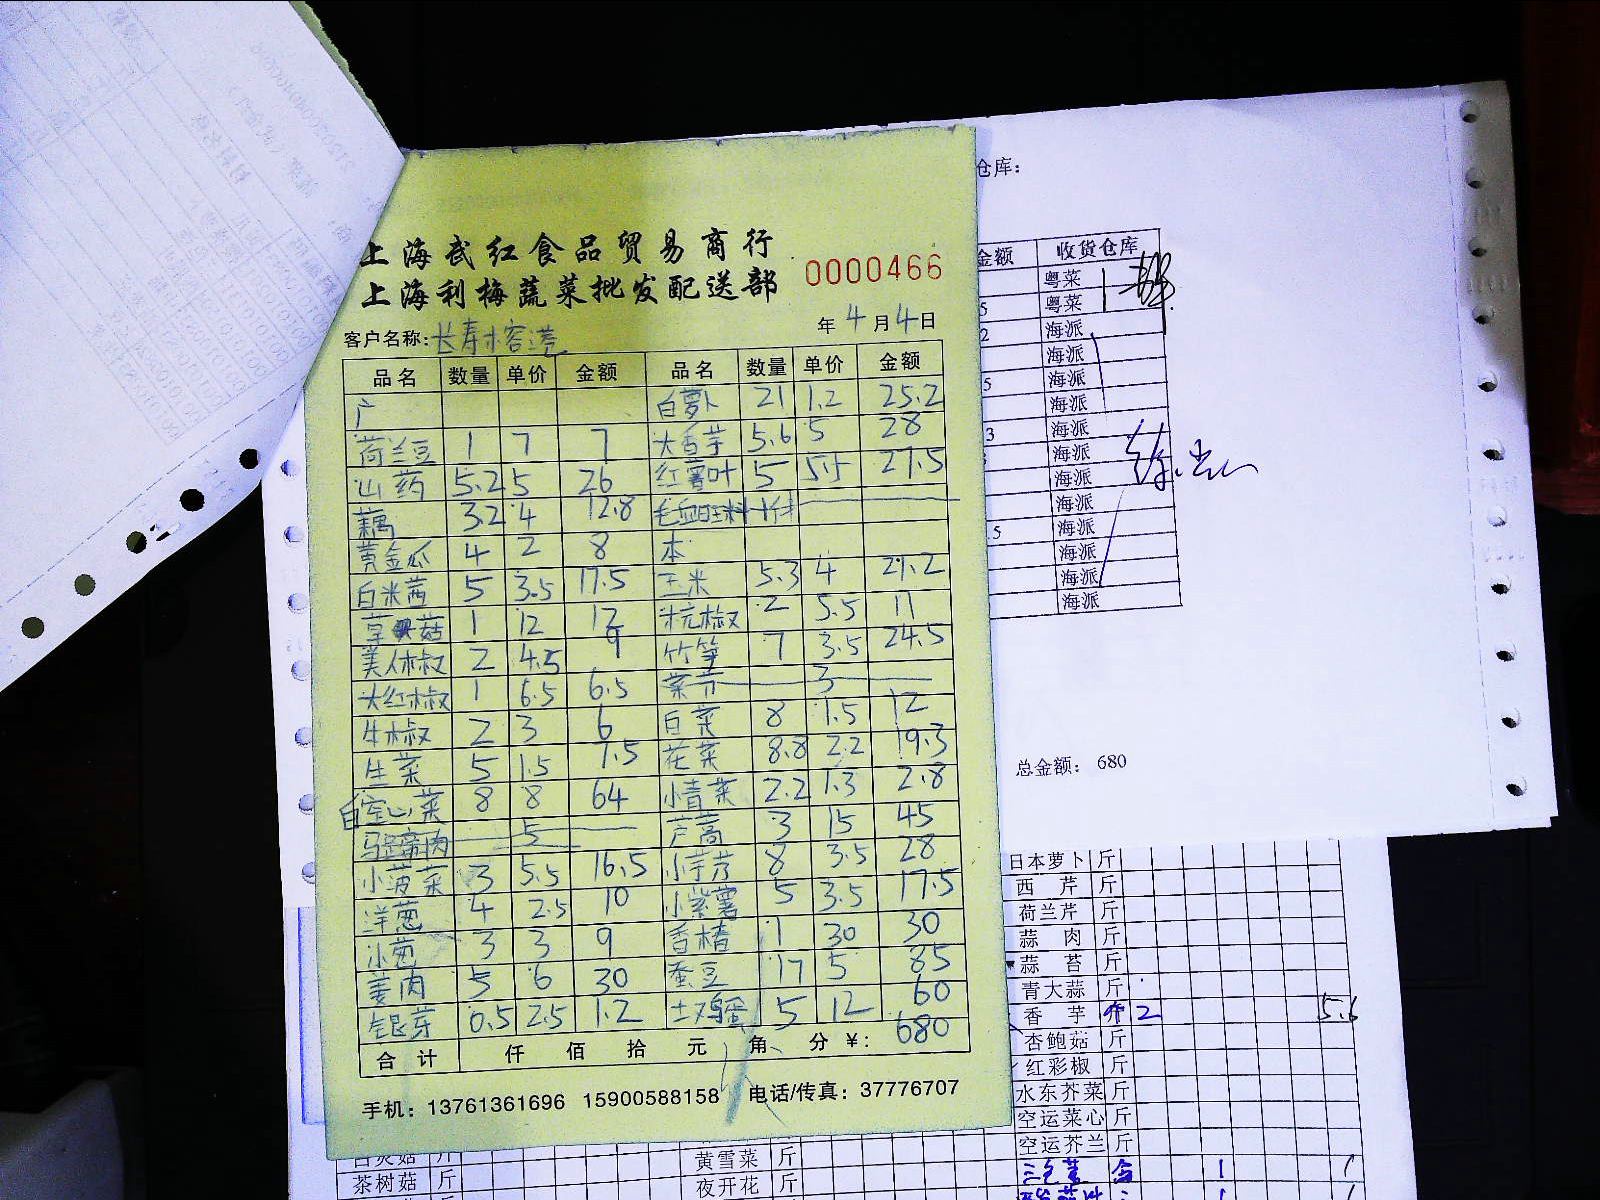 上海武红食品贸易商行
上海利梅蔬菜批发配送部
0000466
客户名称:长寿榕港 年 4 月 4 日
品名 数量 单价 金额 品名 数量 单价 金额
广 白萝卜 21 1.2 25.2
荷兰豆 1 7 7 大香芋 5.6 5 28
山药 5.2 5 26 红薯叶 5 5.5 27.5
藕 3.2 4 12.8 毛血旺料 1件
黄金瓜 4 2 8 本
白米茜 5 3.5 17.5 玉米 5.3 4 21.2
草菇 1 12 12 杭椒 2 5.5 11
美人椒 2 4.5 9 竹笋 7 3.5 24.5
大红椒 1 6.5 6.5 菜节 3
牛椒 2 3 6 白菜 8 1.5 12
生菜 5 1.5 7.5 花菜 8.8 2.2 19.3
白空心菜 8 8 64 小青菜 2.2 1.3 2.8
马蹄肉 5 芦蒿 3 15 45
小菠菜 3 5.5 16.5 小芋艿 8 3.5 28
洋葱 4 2.5 10 小紫薯 5 3.5 17.5
小葱 3 3 9 香椿 1 30 30
姜肉 5 6 30 蚕豆 17 5 85
银芽 0.5 2.5 1.2 土鸡蛋 5 12 60
合 计 仟 佰 拾 元 角 分 ¥: 680
手机: 13761361696 15900588158 电话/传真: 37776707
仓库:
金额 收货仓库
粤菜
5 粤菜
2 海派
海派
5 海派
海派
3 海派
海派
海派
海派
.5 海派
海派
海派
海派
总金额: 680
日本萝卜 斤
西 芹 斤
荷兰芹 斤
蒜 肉 斤
蒜 苔 斤
青大蒜 斤
香 芋 2 5.6
杏鲍菇 斤
红彩椒 斤
水东芥菜 斤
空运菜心 斤
空运芥兰 斤
黄雪菜 斤
茶树菇 斤 夜开花 斤